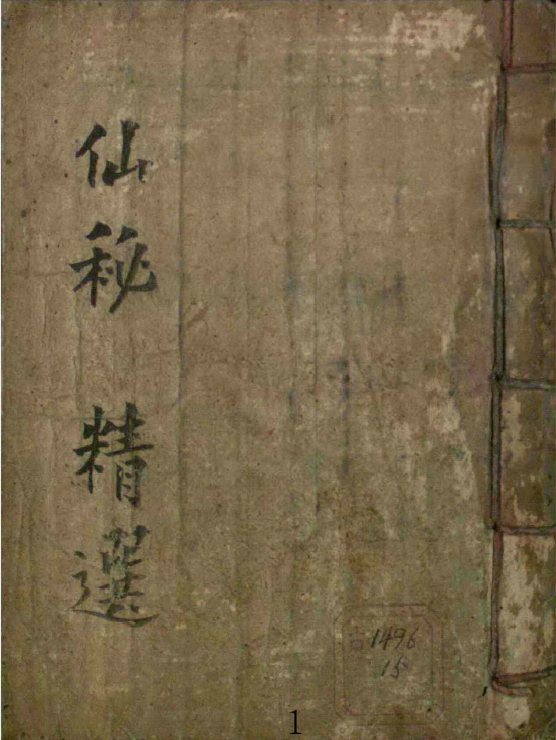 仙秘 精選
古1496
15
1